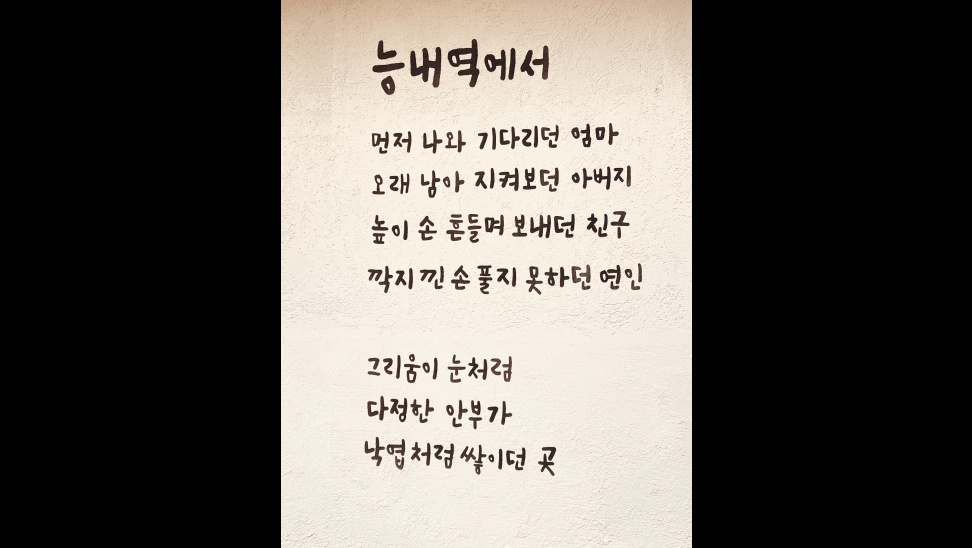 능내역에서
먼저 나와 기다리던 엄마
오래 남아 지켜보던 아버지
높이 손 흔들며 보내던 친구
깍지 낀 손 풀지 못하던 연인
그리움이 눈처럼
다정한 안부가
낙엽처럼 쌓이던 곳